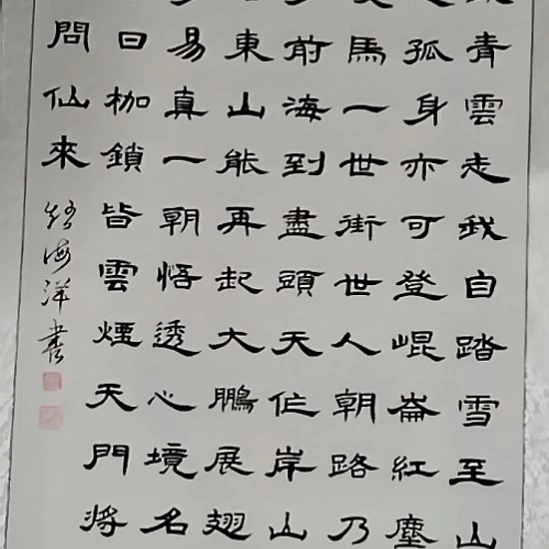 青雲走我自踏雪至山
孤身亦可登崐崙紅塵
馬一世街世人朝路乃
前海到盡頭天作岸山
東山能再起大鵬展翅
易真一朝悟透心境名
曰枷鎖皆雲煙天門將
問仙來
海洋書